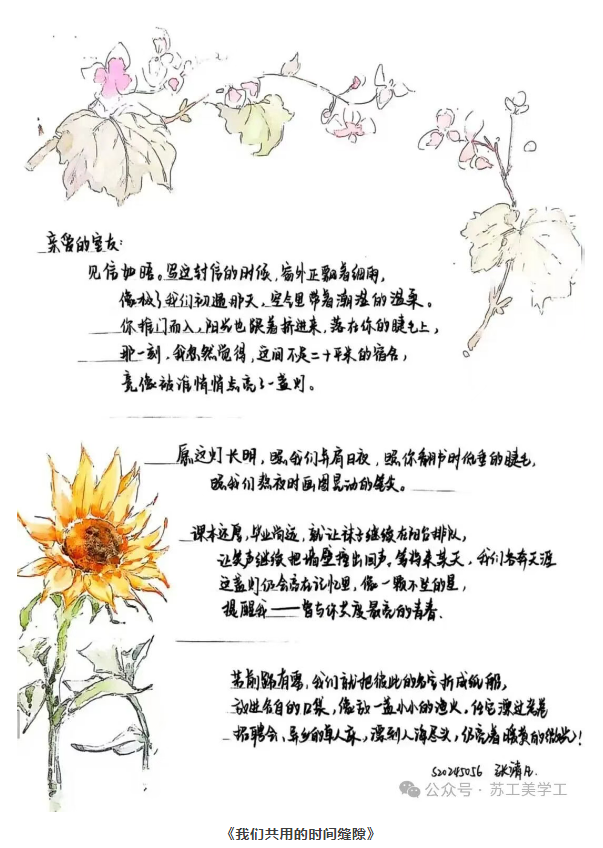 亲爱的室友：
见信如晤。写这封信的时候，窗外正飘着细雨，
像极了我们初遇那天，空气里带着潮湿的温柔。
你推门而入，阳光也跟着挤进来，落在你的睫毛上，
那一刻，我忽然觉得，这间不足二十平米的宿舍，
竟像被谁悄悄点亮了一盏灯。
愿这灯长明，照我们并肩日夜，照你翻书时低垂的睫毛，
照我们熬夜时画图晃动的笔尖。
课本还厚，毕业尚远，就让袜子继续在阳台排队，
让笑声继续把墙壁撞出回声。等将来某天，我们各奔天涯
这盏灯仍会亮在记忆里，像一颗不坠的星，
提醒我——曾与你共度最亮的青春．
若前路有雾，我们就把彼此的名字折成纸船，
放进各自的口袋，像放一盏小小的渔火，任它漂过
招聘会、异乡的单人床，漂到人海尽头，仍亮着暖黄的
S20245056
公众号·苏工美学工
《我们共用的时间缝隙》